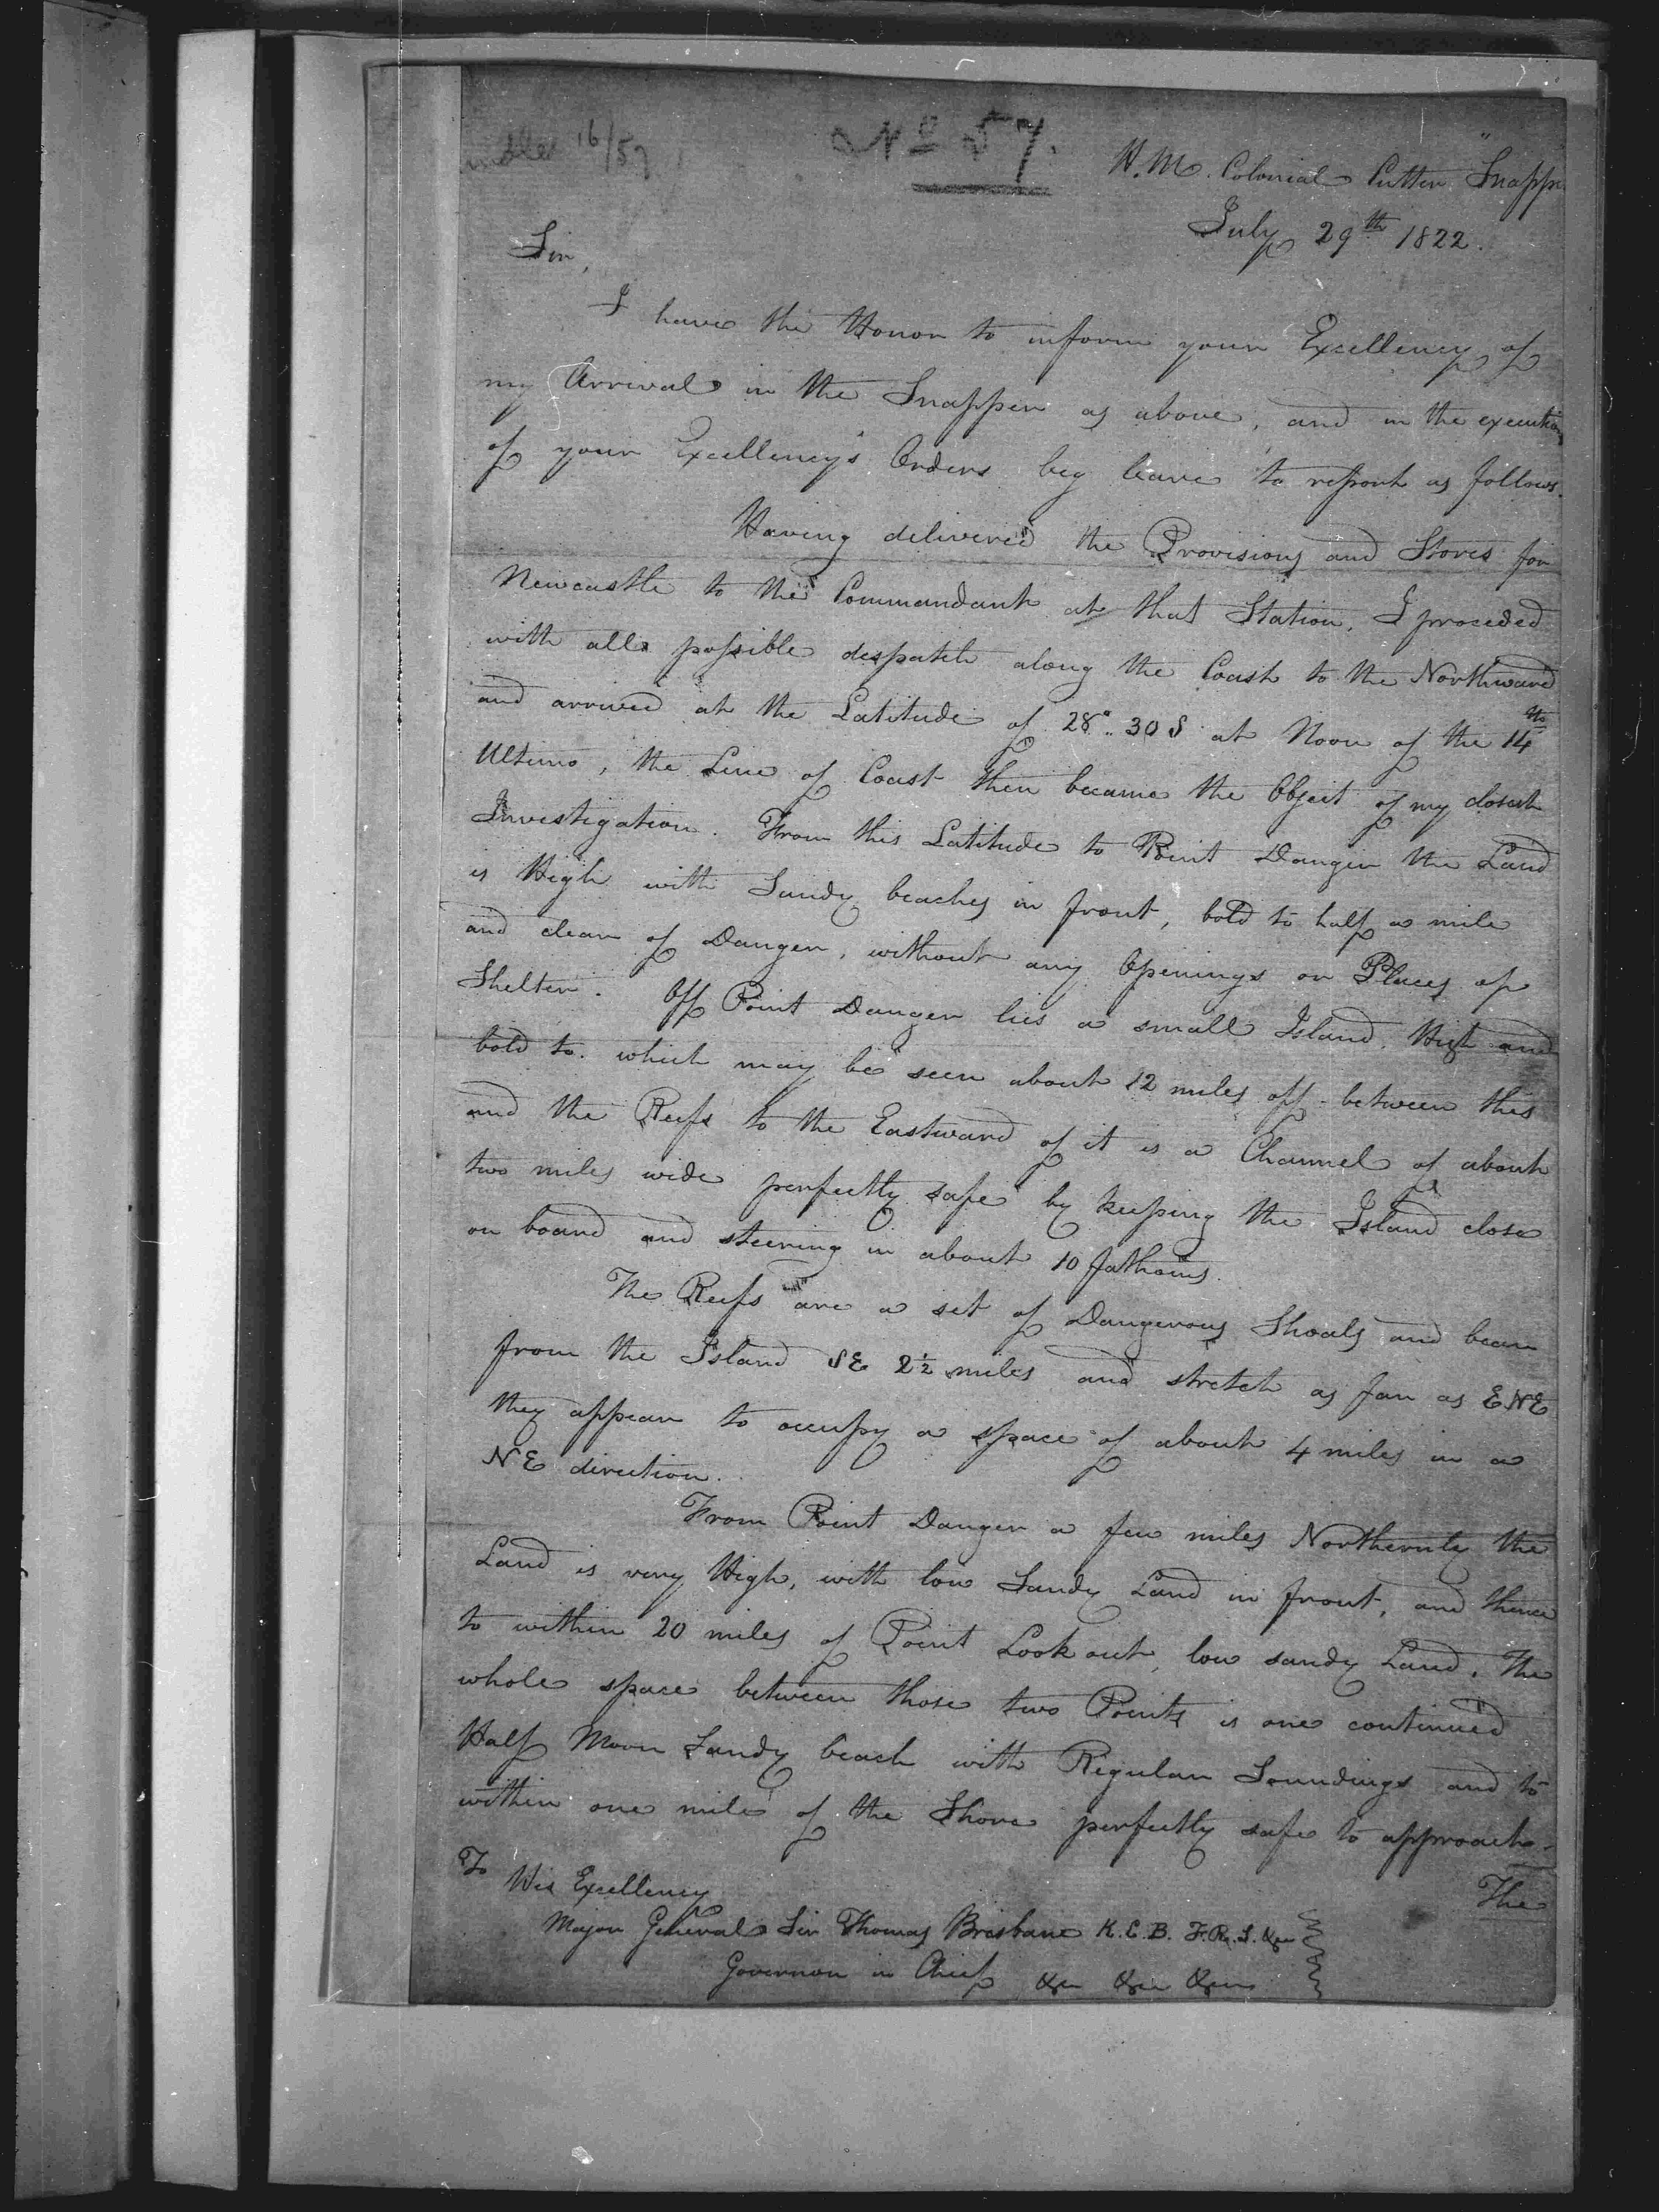 16/57
No 57.
H.M. Colonial Cutter "Snapp
July 29th 1822.
Sir,
I have the Honor to inform your Excellency of
my Arrival in the Snapper as above, and in the execution
of your Excellency's Orders beg leave to report as follows.
Having delivered the Provisions and Stores for
Newcastle to the Commandant at that Station, I proceeded
with all possible despatch along the Coast to the Northward
and arrived at the Latitude of 28°.. 30 S at Noon of the 14th
Ultimo, the Line of Coast then became the Object of my closest
Investigation. From this Latitude to Point Danger the Land
is High with Sandy beaches in front, bold to half a mile
and clear of Danger, without any Openings or Places of
Shelter. Off Point Danger lies a small Island, High and
bold to. which may be seen about 12 miles off - between this
and the Reefs to the Eastward of it is a Channel of about
two miles wide perfectly safe by keeping the Island close
on board and steering in about 10 fathoms.
The Reefs are a set of Dangerous Shoals and bear
from the Island SE 2½ miles and stretch as far as ENE
they appear to occupy a space of about 4 miles in a
NE direction.
From Point Danger a few miles Northernly the
Land is very High, with low Sandy Land in front, and thence
to within 20 miles of Point Look out, low sandy Land. The
whole space between those two Points is one continued
Half Moon Sandy beach with Regular Soundings and to
within one mile of the Shore perfectly safe to approach -
The
To
His Excellency
Major General Sir Thomas Brisbane K.C.B. F.R.S. &c
Governor in Chief &c &c &c